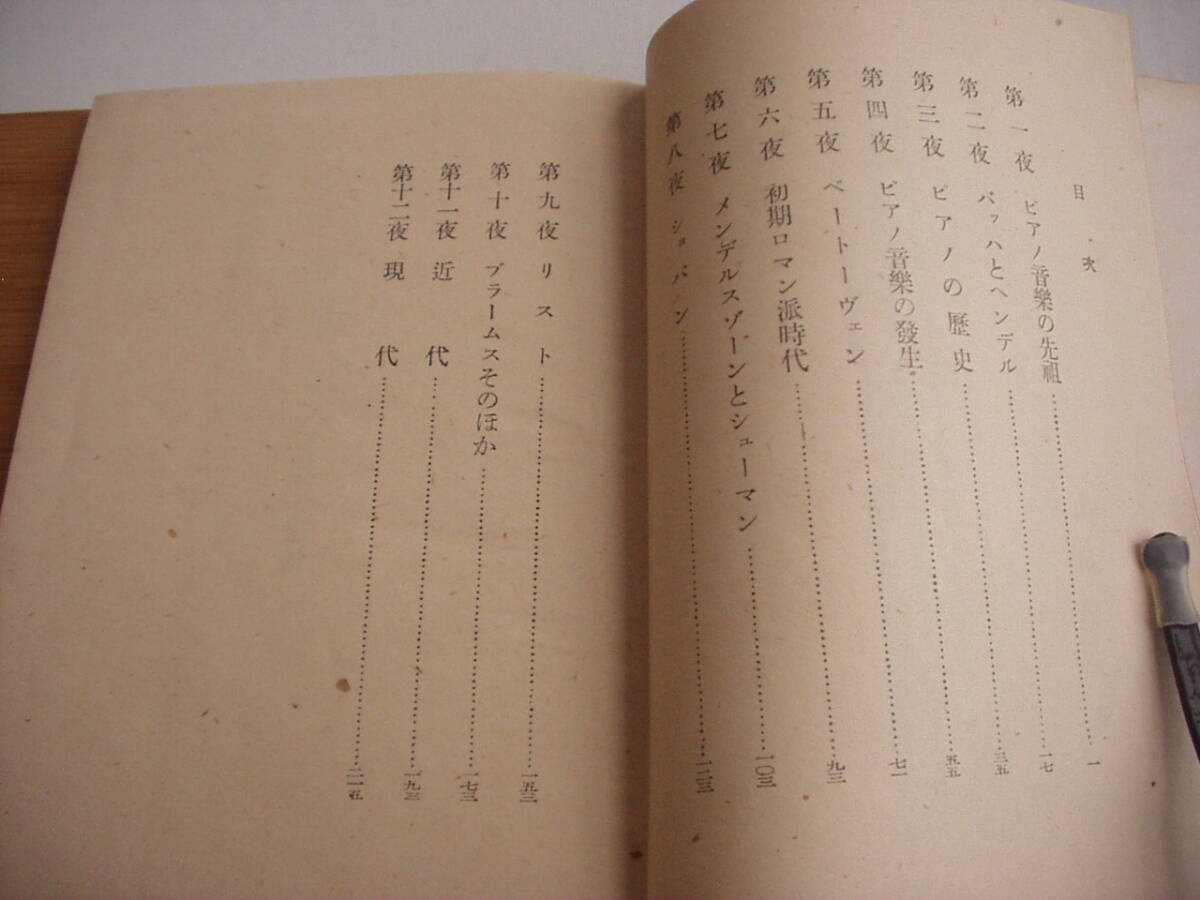 目次
第一夜 ピアノ音樂の先祖……一
第二夜 バッハとヘンデル……一七
第三夜 ピアノの歷史……三五
第四夜 ピアノ音樂の發生……五五
第五夜 ベートーヴェン……七一
第六夜 初期ロマン派時代……九三
第七夜 メンデルスゾーンとシューマン……一〇三
第八夜 ショパン……一二三
第九夜 リスト……一五三
第十夜 ブラームスそのほか……一七三
第十一夜 近代……一九三
第十二夜 現代……二一五